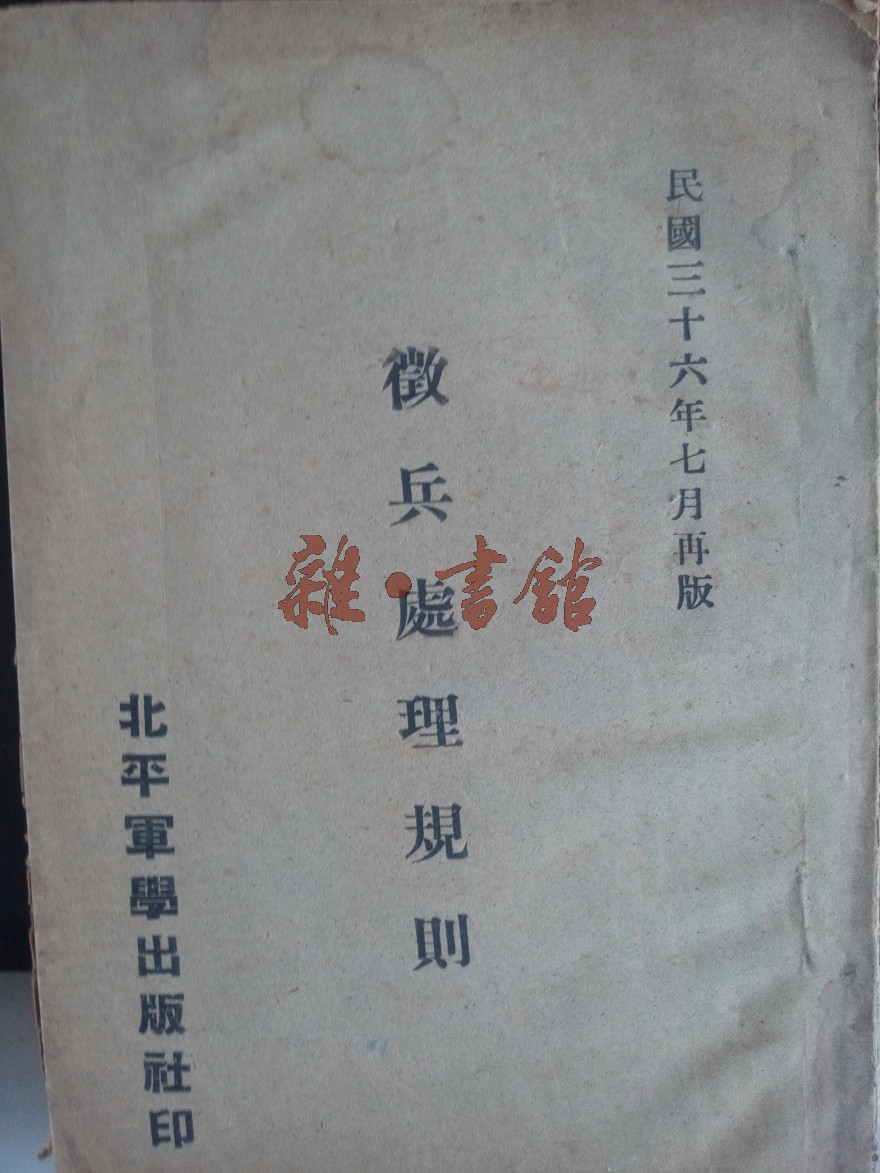 民國三十六年七月再版
徵兵處理規則
北平軍學出版社印
雜·書館